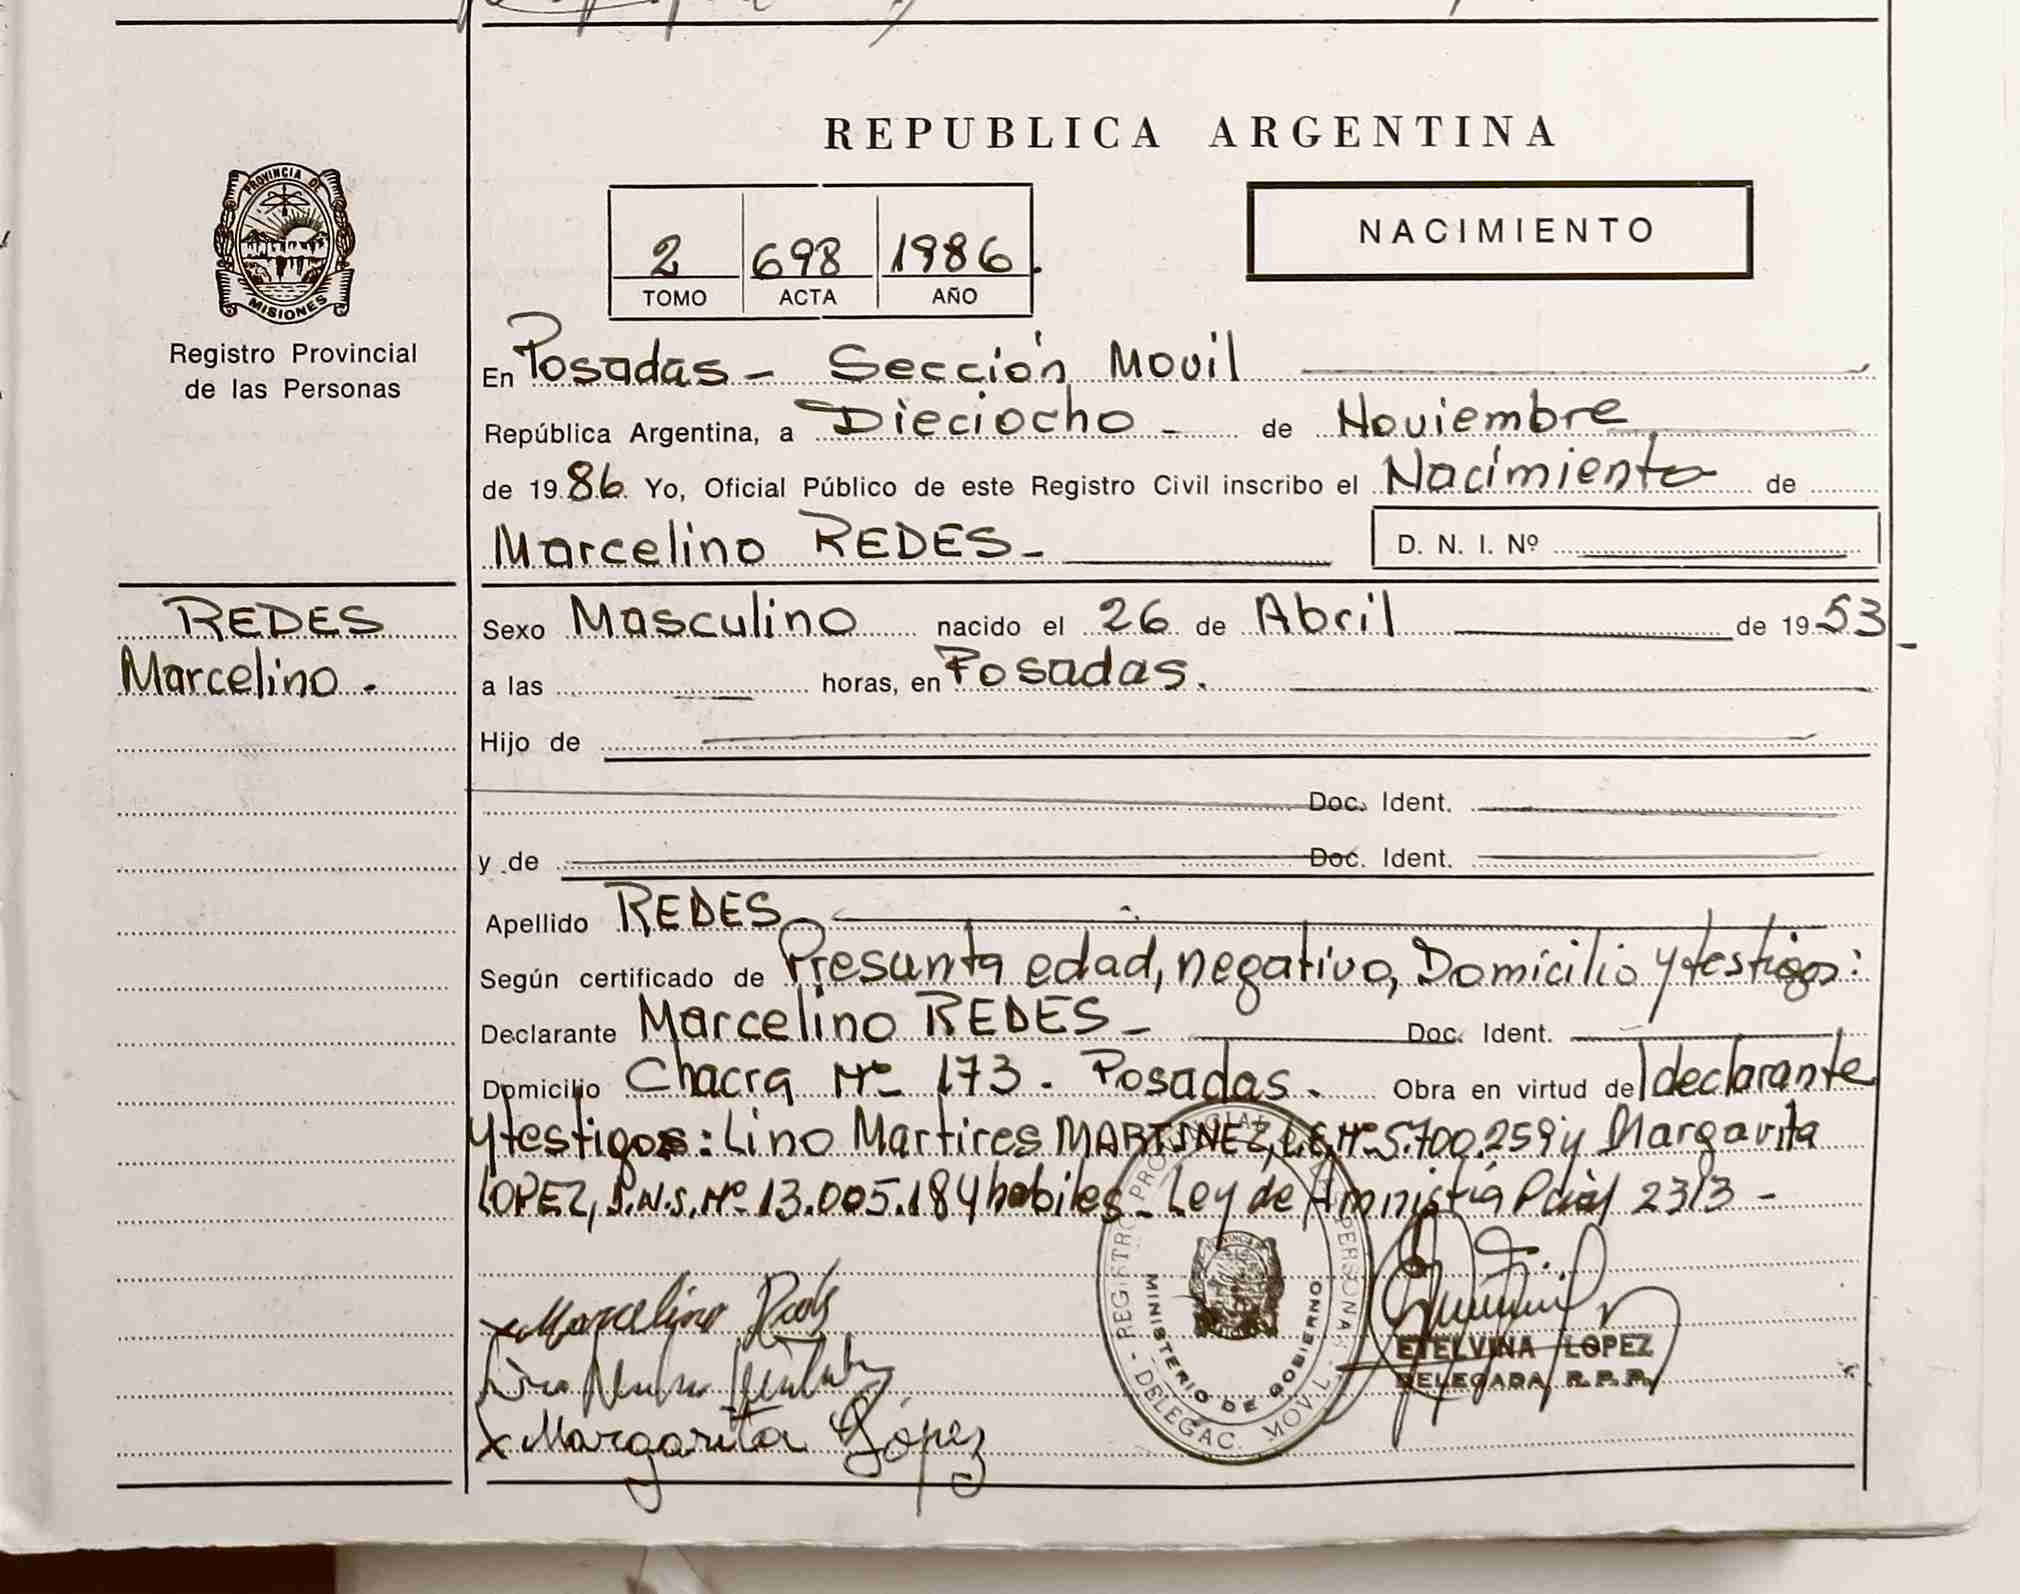 REPUBLICA ARGENTINA
PROVINCIA DE
MISIONES
Registro Provincial
de las Personas
2 698 1986.
TOMO ACTA AÑO
NACIMIENTO
En Posadas - Sección Movil
República Argentina, a Dieciocho - de Noviembre
de 1986. Yo, Oficial Público de este Registro Civil inscribo el Nacimiento de
Marcelino REDES - D. N. I. Nº
REDES
Marcelino.
Sexo Masculino nacido el 26 de Abril de 1953 -
a las horas, en Posadas.
Hijo de
Doc. Ident.
y de Doc. Ident.
Apellido REDES
Según certificado de Presunta edad, negativo, Domicilio y testigos:
Declarante Marcelino REDES - Doc. Ident.
Domicilio Chacra Nº 173. Posadas. Obra en virtud de declarante
y testigos: Lino Martires MARTINEZ, L.E. Nº 5.700.259 y Margarita
LOPEZ, Nº 13.005.184 habiles - Ley de Amnistía Pcial 2313 -
Marcelino Redes
Margarita López
MINISTERIO DE GOBIERNO
DELEGAC. MOVIL
ETELVINA LOPEZ
DELEGADA R.P.P.